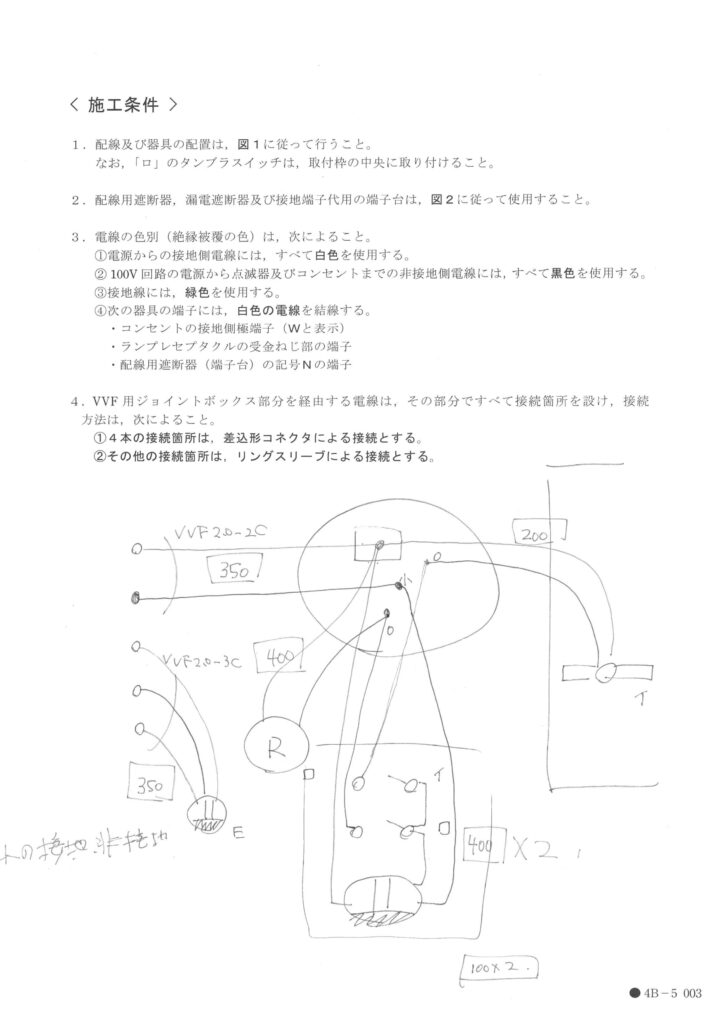 〈 施工条件 〉
1．配線及び器具の配置は，図1に従って行うこと。
なお，「ロ」のタンブラスイッチは，取付枠の中央に取り付けること。
2．配線用遮断器，漏電遮断器及び接地端子代用の端子台は，図2に従って使用すること。
3．電線の色別（絶縁被覆の色）は，次によること。
①電源からの接地側電線には，すべて白色を使用する。
②100V 回路の電源から点滅器及びコンセントまでの非接地側電線には，すべて黒色を使用する。
③接地線には，緑色を使用する。
④次の器具の端子には，白色の電線を結線する。
・コンセントの接地側極端子（Wと表示）
・ランプレセプタクルの受金ねじ部の端子
・配線用遮断器（端子台）の記号Nの端子
4．VVF 用ジョイントボックス部分を経由する電線は，その部分ですべて接続箇所を設け，接続
方法は，次によること。
①4本の接続箇所は，差込形コネクタによる接続とする。
②その他の接続箇所は，リングスリーブによる接続とする。
VVF 2.0-2C
200
350
小
VVF 2.0-3C
400
イ
R
350
ロ
イ
E
ロ
400 ×2
100×2
●4B－5 003